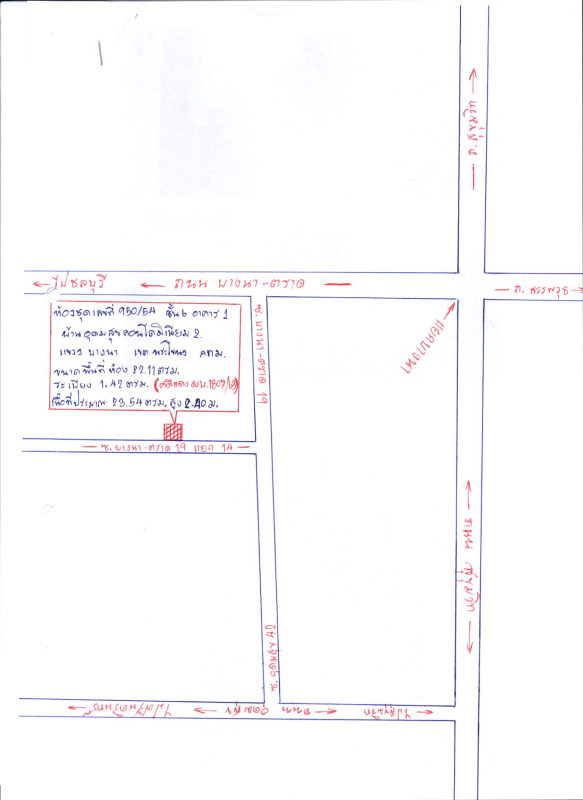 ไปชลบุรี ถนน บางนา-ตราด
ถ. สรรพาวุธ
ห้องชุดเลขที่ 950/54 ชั้น 6 อาคาร 1
บ้านอุดมสุขคอนโดมิเนียม 2
แขวง บางนา เขต พระโขนง กทม.
ขนาดพื้นที่ห้อง 22.11 ตรม.
ระเบียง 1.42 ตรม.
เนื้อที่ประมาณ 23.54 ตรม. สูง 2.40 ม.
ซ. บางนา-ตราด 19
แยกบางนา
ซ. บางนา-ตราด 19 แยก 14
ถนน สุขุมวิท
ไปศรีนครินทร์ อุดมสุข ถนน ไปสุขุมวิท